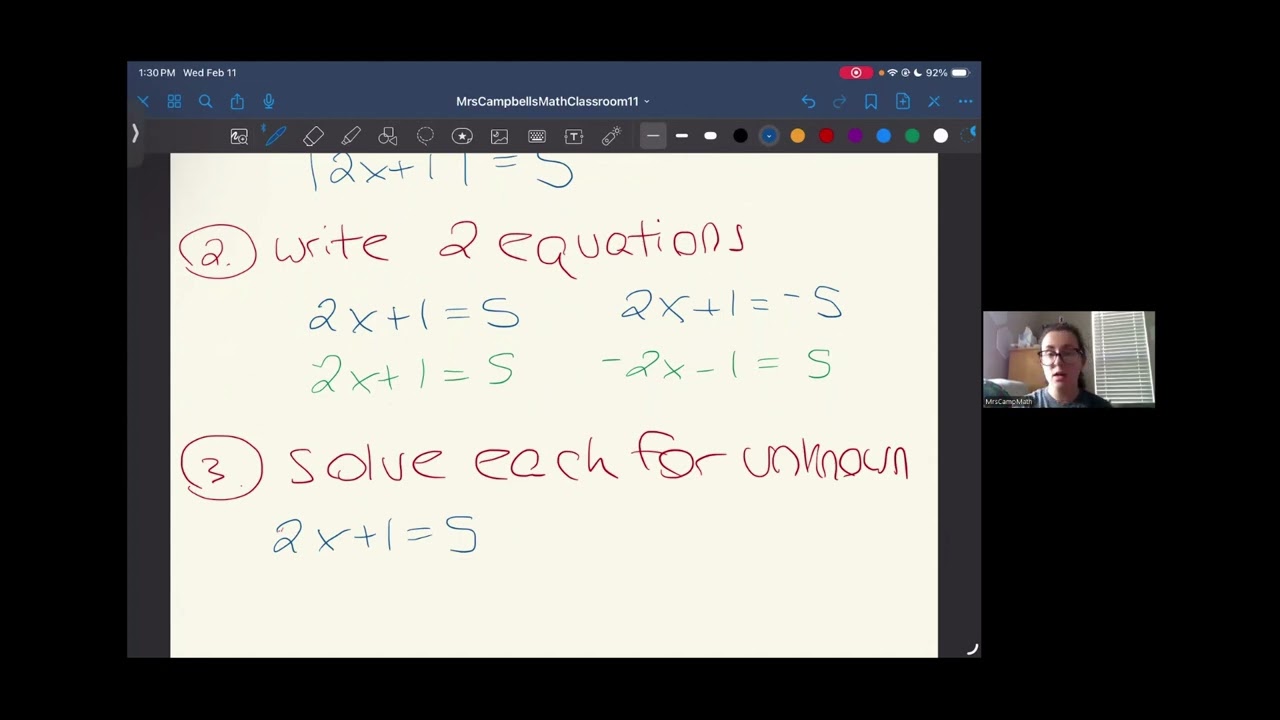 1:30 PM Wed Feb 11
92%
MrsCampbellsMathClassroom11
|2x+1| = 5
2. write 2 equations
2x+1=5 2x+1=-5
2x+1=5 -2x-1=5
3. solve each for unknown
2x+1=5
MrsCampMath